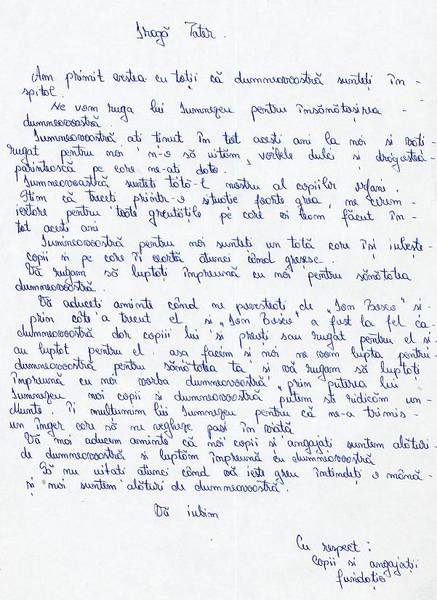 Dragă Pater.
Am primit vestea cu toții că dumneavoastră sunteți în -
spital.
Ne vom ruga lui Dumnezeu pentru însănătașirea -
dumneavoastră
Dumneavoastră ati ținut în tot acesti ani la noi si v-ati -
rugat pentru noi n-o să uităm, vorbele dulci si dragostea
părintească pe care ne-ati dato.
Dumneavoastră sunteti tătă-l nostru al copiilor orfani.
Stim că treceti printr-o situatie foarte grea, ne cerem -
iertare pentru toate greutățile pe care vi leam făcut în -
tot acesti ani
Dumneavoastră pentru noi sunteti un tată care își iubește-
copii si pe care îi iartă atunci când gresesc.
Vă rugam să luptați împreună cu noi pentru sănătatea
dumneavoastră.
Vă aduceti aminte când ne povesteati de „Don Bosco" si-
prin câte a trecut el si „Don Bosco" a fost la fel ca-
dumneavoastră dar copiii lui si preoti sau rugat pentru el si-
au luptat pentru el. asa facem si noi ne vom lupta pentru-
dumneavoastră pentru sănătatea ta si vă rugam să luptați
împreună cu noi vorba dumneavoastră „prin puterea lui
Dumnezeu noi copii si dumneavoastră putem să ridicăm un-
Munte. Îi multumim lui Dumnezeu pentru că ne-a trimis-
un înger care să ne vegheze pasi în viată
Vă mai aducem aminte că noi copii si angajati suntem alături-
de dumneavoastră si luptăm împreună cu dumneavoastră
Să nu uitati atunci când vă este greu întindeți o mână-
și noi suntem alături de dumneavoastră.
Vă iubim
Cu respect:
copii si angajații
fundatie